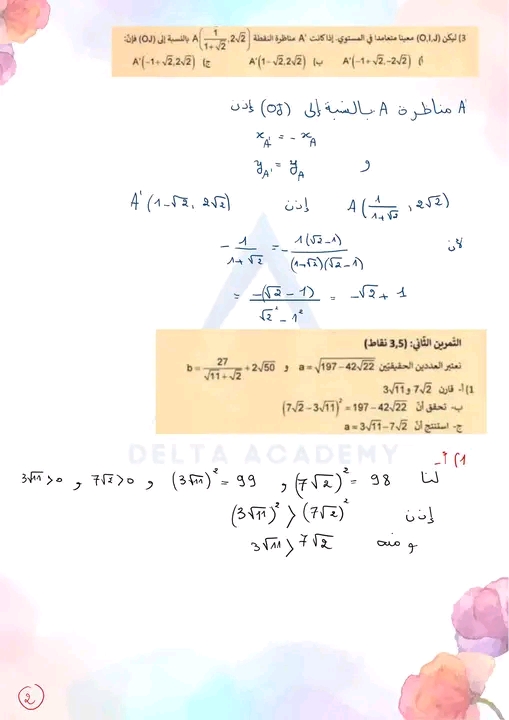 3) ليكن (O,I,J) معينا متعامدا في المستوي. إذا كانت 'A مناظرة النقطة A(1/(1+√2), 2√2) بالنسبة إلى (OJ) فإنّ:
أ) A'(-1+√2,-2√2) ب) A'(1-√2,2√2) ج) A'(-1+√2,2√2)
A' مناظرة A بالنسبة إلى (OJ) إذن
x_A' = -x_A
و y_A' = y_A
A(1/(1+√2), 2√2) إذن A'(1-√2, 2√2)
لأن -1/(1+√2) = -1(√2-1)/((1+√2)(√2-1))
= -(√2-1)/(√2² - 1²) = -√2+1
التمرين الثاني: (3,5 نقاط)
نعتبر العددين الحقيقيين a=√(197-42√22) و b=27/(√11+√2)+2√50
1) أ- قارن 7√2 و 3√11
ب- تحقق أنّ (7√2-3√11)² = 197-42√22
ج- استنتج أنّ a=3√11-7√2
DELTA ACADEMY
1) أ-
لنا (7√2)² = 98 , (3√11)² = 99 , 7√2>0 , 3√11>0
إذن (3√11)² > (7√2)²
و منه 3√11 > 7√2
2